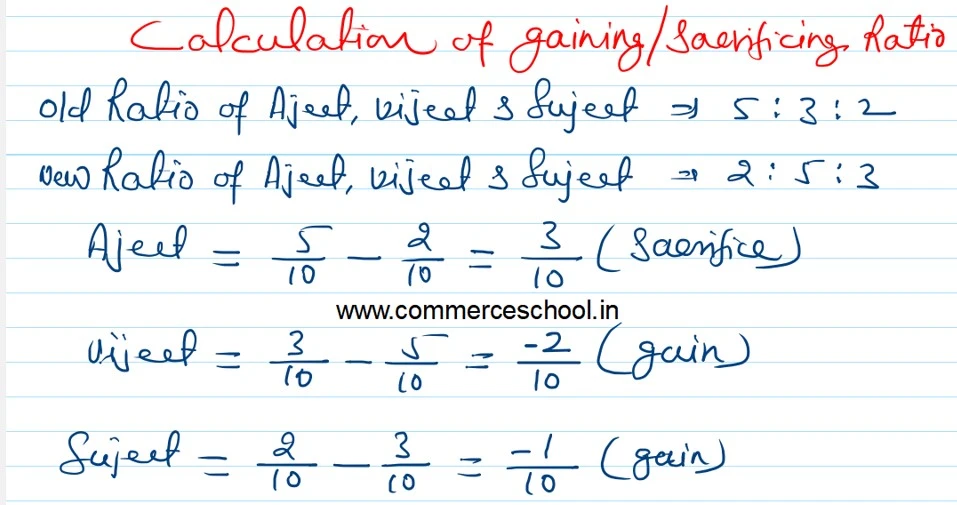 Calculation of gaining/Sacrificing Ratio
old Ratio of Ajeet, vijeet & Sujeet ⇒ 5 : 3 : 2
new Ratio of Ajeet, vijeet & Sujeet ⇒ 2 : 5 : 3
Ajeet = 5/10 - 2/10 = 3/10 (Sacrifice)
www.commerceschool.in
vijeet = 3/10 - 5/10 = -2/10 (gain)
Sujeet = 2/10 - 3/10 = -1/10 (gain)